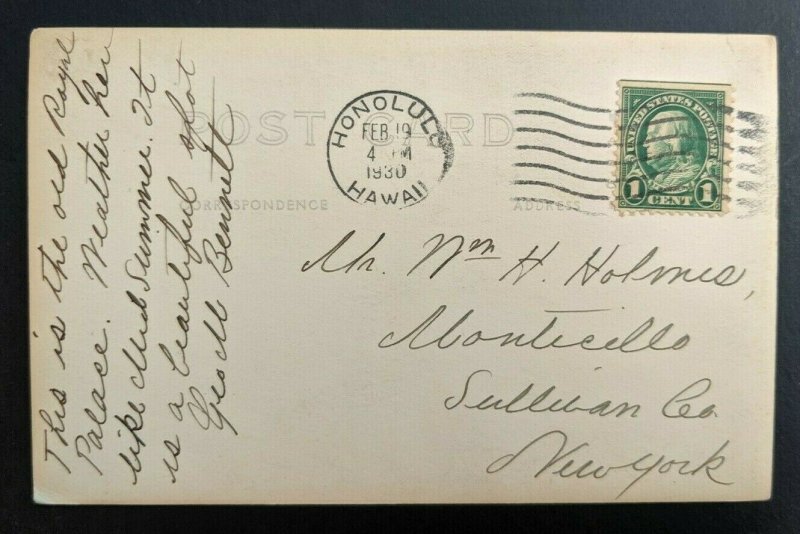 This is the old Royal
Palace. Weather here
like Mid Summer. It
is a beautiful spot
Geo M Bennett
POST CARD
CORRESPONDENCE
ADDRESS
HONOLULU
FEB 19
4 PM
1930
HAWAII
UNITED STATES POSTAGE
1 CENT 1
Mr. Wm H. Holmes,
Monticello
Sullivan Co.
New York